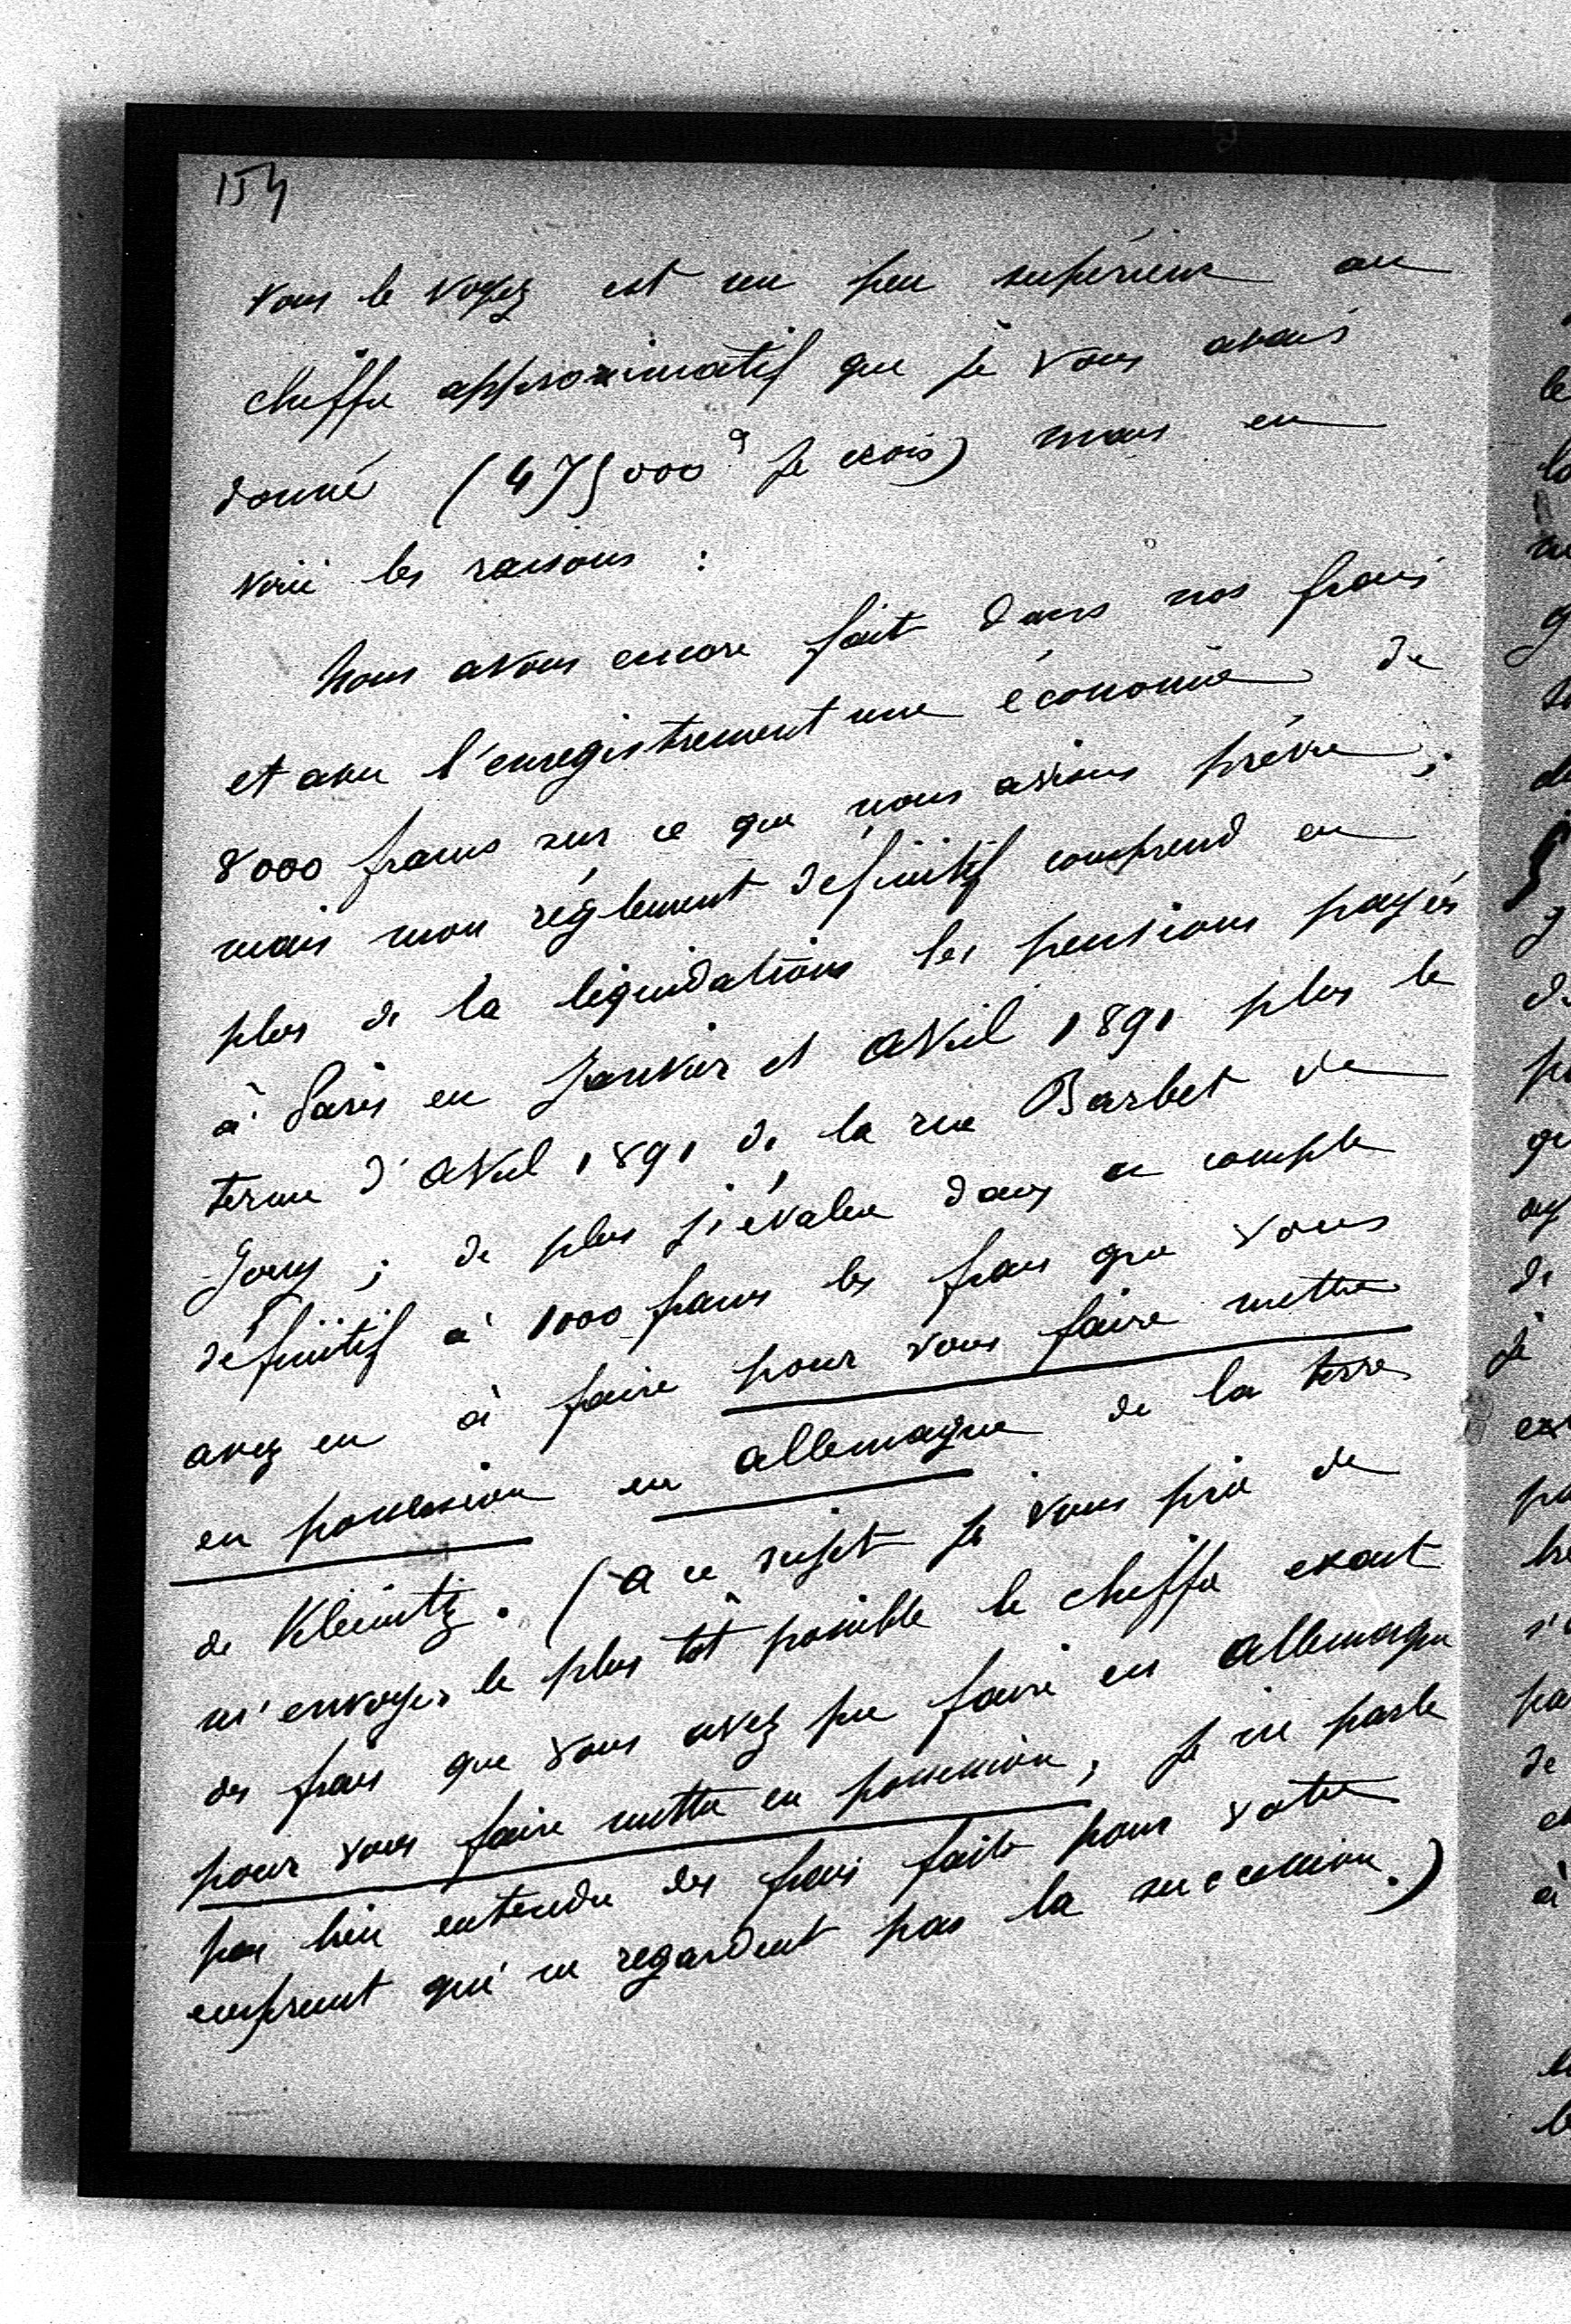 154
vous le voyez est un peu supérieur au
chiffre approximatif que je vous avais
donné (475000 je crois) mais en
voici les raisons :
Nous avons encore fait dans nos frais
et avec l'enregistrement une économie de
8000 francs sur ce que nous avions prévu ;
mais mon règlement définitif comprend en
plus de la liquidations les pensions payés
à Paris en Janvier et Avril 1891 plus le
terme d'Avril 1891 de la rue Barbet de
Jouy ; de plus j'évalue dans ce compte
définitif à 1000 francs les frais que vous
avez eu à faire pour vous faire mettre
en possession en Allemagne de la terre
de Kleinitz. (A ce sujet je vous prie de
m'envoyer le plus tôt possible le chiffre exact
des frais que vous avez pu faire en Allemagne
pour vous faire mettre en possession, je ne parle
pas bien entendu des frais faits pour votre
emprunt qui ne regardent pas la succession.)